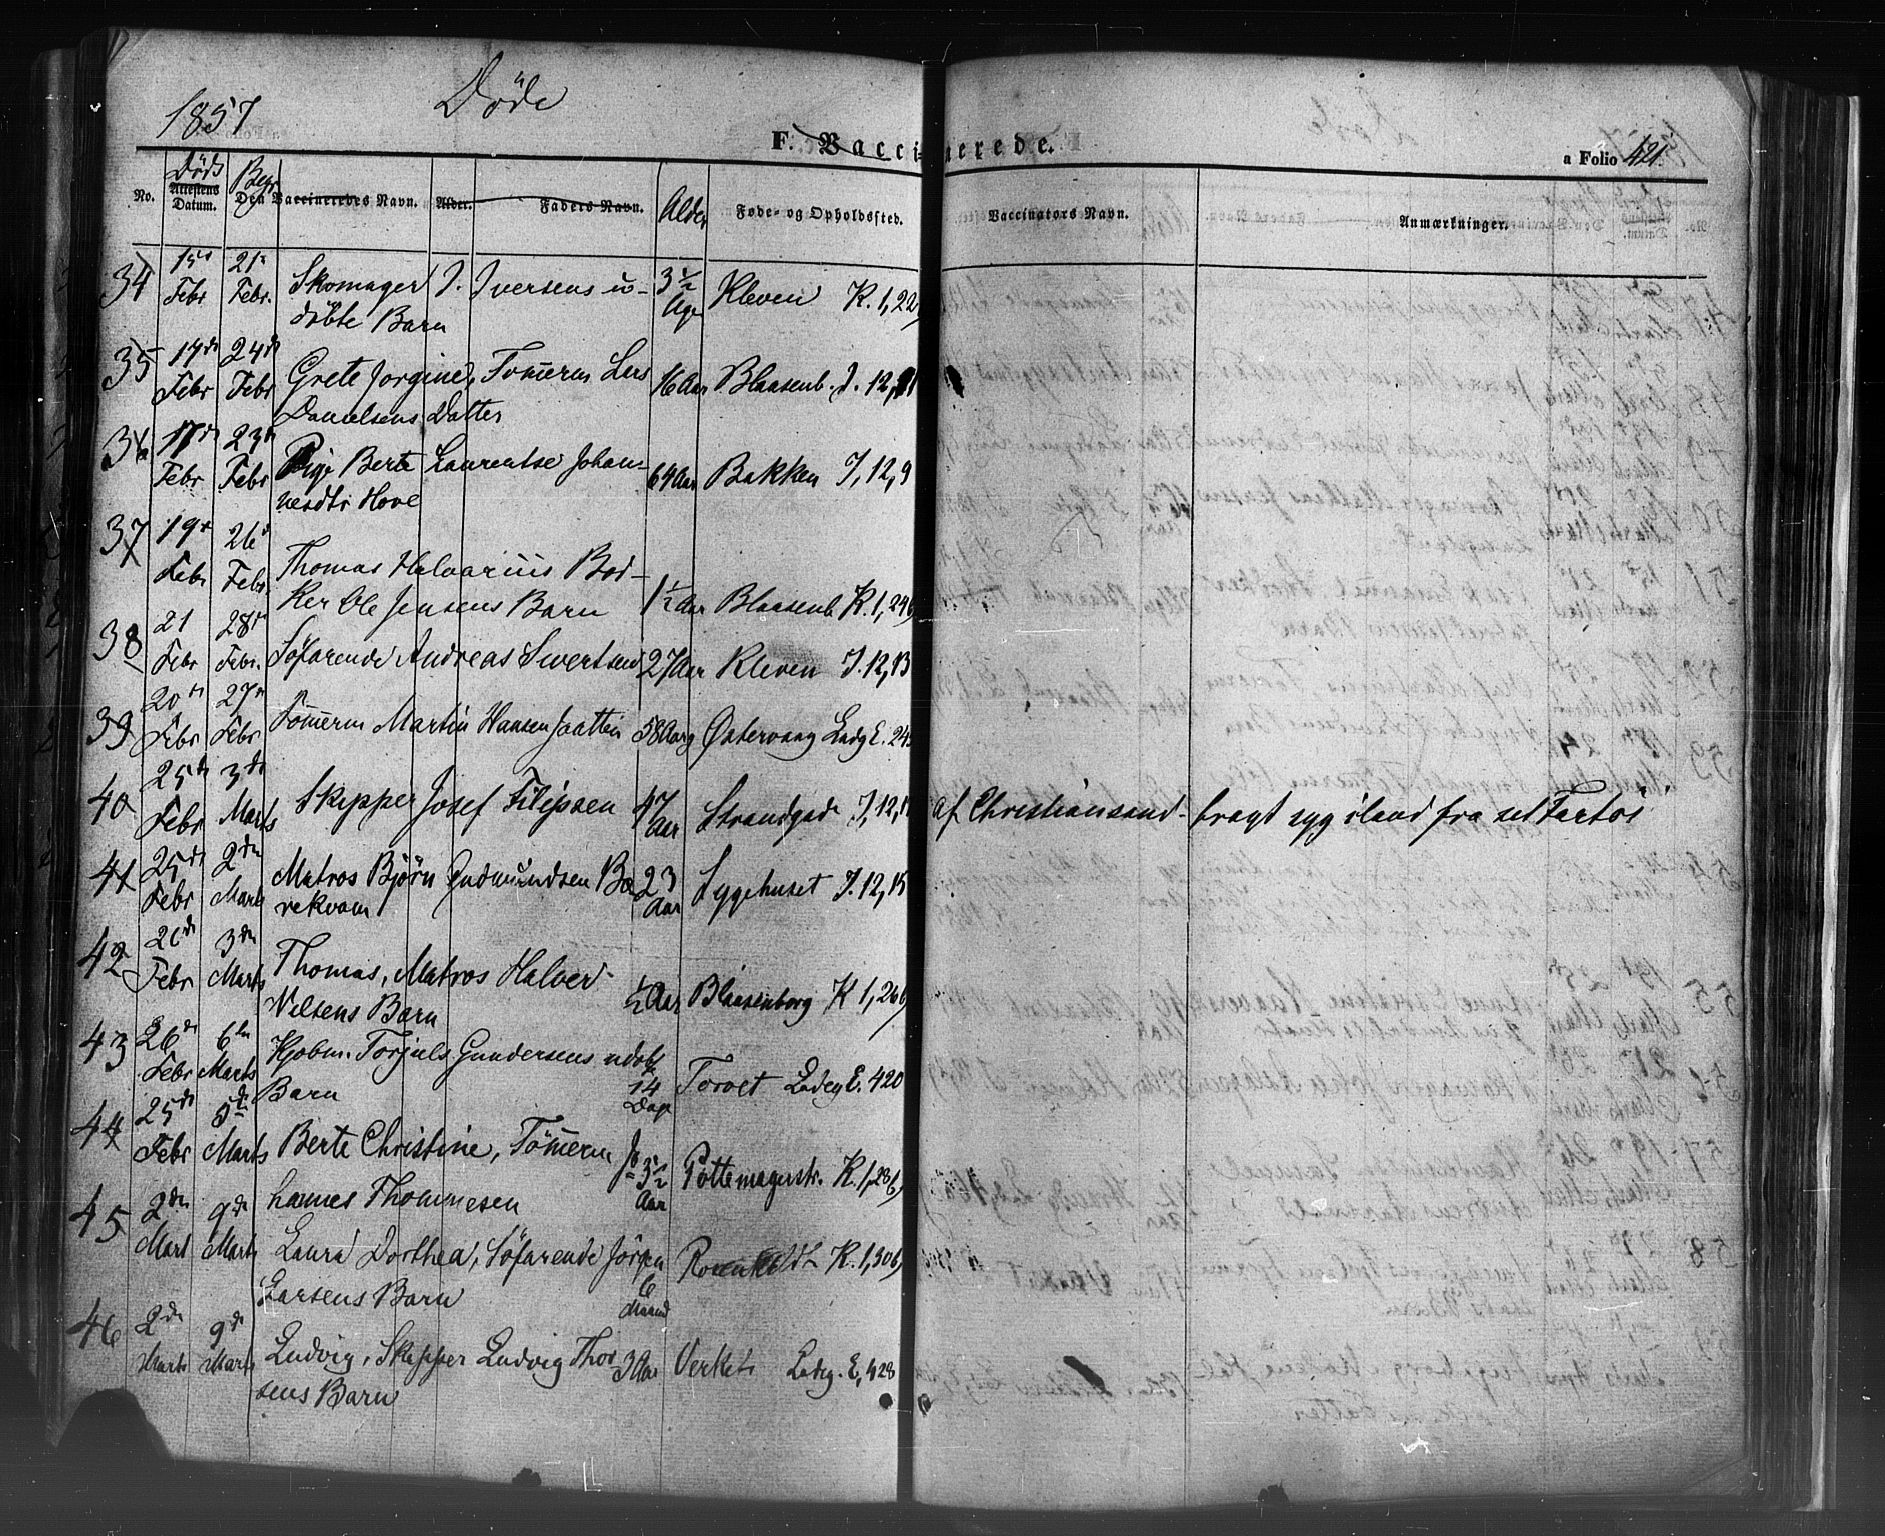 1857 Döde
F. Vaccinerede.
a Folio 421.
No. Attestens Datum. Döds Begr Den Vaccineredes Navn. Alder. Faders Navn. Alder Føde- og Opholdssted. Vaccinators Navn. Anmærkninger.
34 15de Febr 21de Febr. Skomager J. Iversens u-
döbte Barn 3½ Uge Kleven K. 1, 22
35 19de Febr 24de Febr Grete Jorgine, Tömerm Lars
Danielsens Datter 16 Aar Blaasenb. J. 12,
36 17de Febr 23de Febr Pige Berte Laurentse Johan-
nesdtr Hove 64 Aar Bakken J, 12, 9
37 19de Febr 26de Febr. Thomas Halvarius Böd-
ker Ole Jensens Barn 1½ Aar Blaasenb K. 1, 246
38 21 Febr 28de Febr. Söfarende Andreas Sivertsen 27 Aar Kleven J. 12, 13
39 20de Febr 27de Febr Tömerm Martin Hansen Jaatten 58 Aar Østervaag Ladg E. 245
40 25de Febr 3de Marts Skipper Josef Filipsen 47 Aar Strandgad J, 12, af Christiansand - bragt syg iland fra
41 25de Febr 2den Marts Matros Björn Gudmundsen Bæ
rekvam 23 Aar Sygehuset J. 12, 15
42 Febr 3den Marts Thomas, Matros Halvor
Nilsens Barn ½ Aar Blaasenborg K 1, 266
43 26de Febr 6te Marts Kjöbm. Torjuls Gundersens udöbt
Barn 14 Dage Torvet Ladeg E. 420
44 25de Febr 5te Marts Berte Christine, Tömerm Jo-
hannes Thommesen 3½ Aar Pottemagerstr. K. 1, 286
45 2den Mart 9de Marts Laura Dorthea, Söfarende Jörgen
Larsens Barn 6 Maaned K. 1, 306
46 2de Marts 9de Marts Ludvig, Skipper Ludvig Thor
sens Barn 3 Aar Verket Ladeg. E, 428